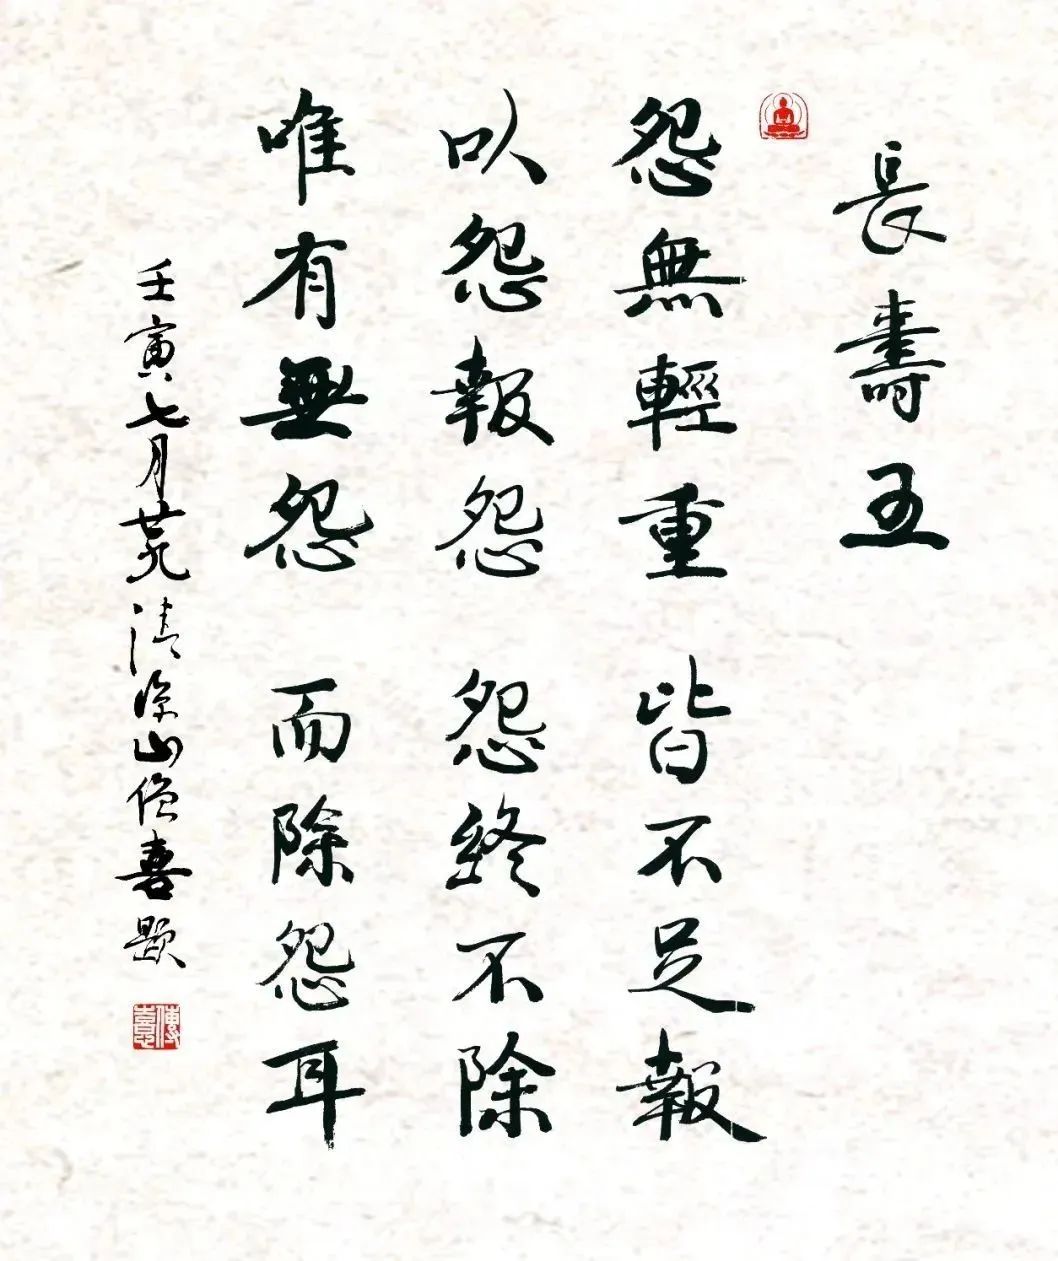 長壽王
怨無輕重 皆不足報
以怨報怨 怨終不除
唯有無怨 而除怨耳
壬寅七月廿九清涼山傳喜題
傳喜